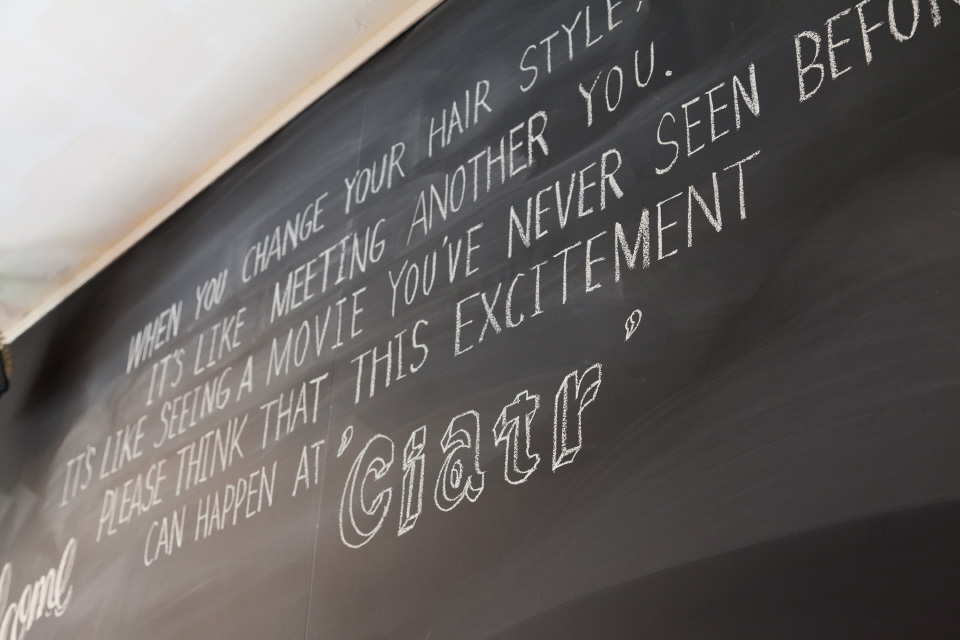 WHEN YOU CHANGE YOUR HAIR STYLE,
IT'S LIKE MEETING ANOTHER YOU.
IT'S LIKE SEEING A MOVIE YOU'VE NEVER SEEN BEFOR
PLEASE THINK THAT THIS EXCITEMENT
CAN HAPPEN AT 'Ciatr'